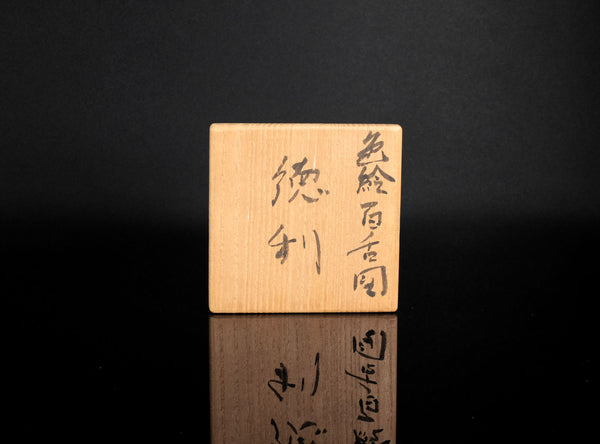 色絵百舌図
徳利